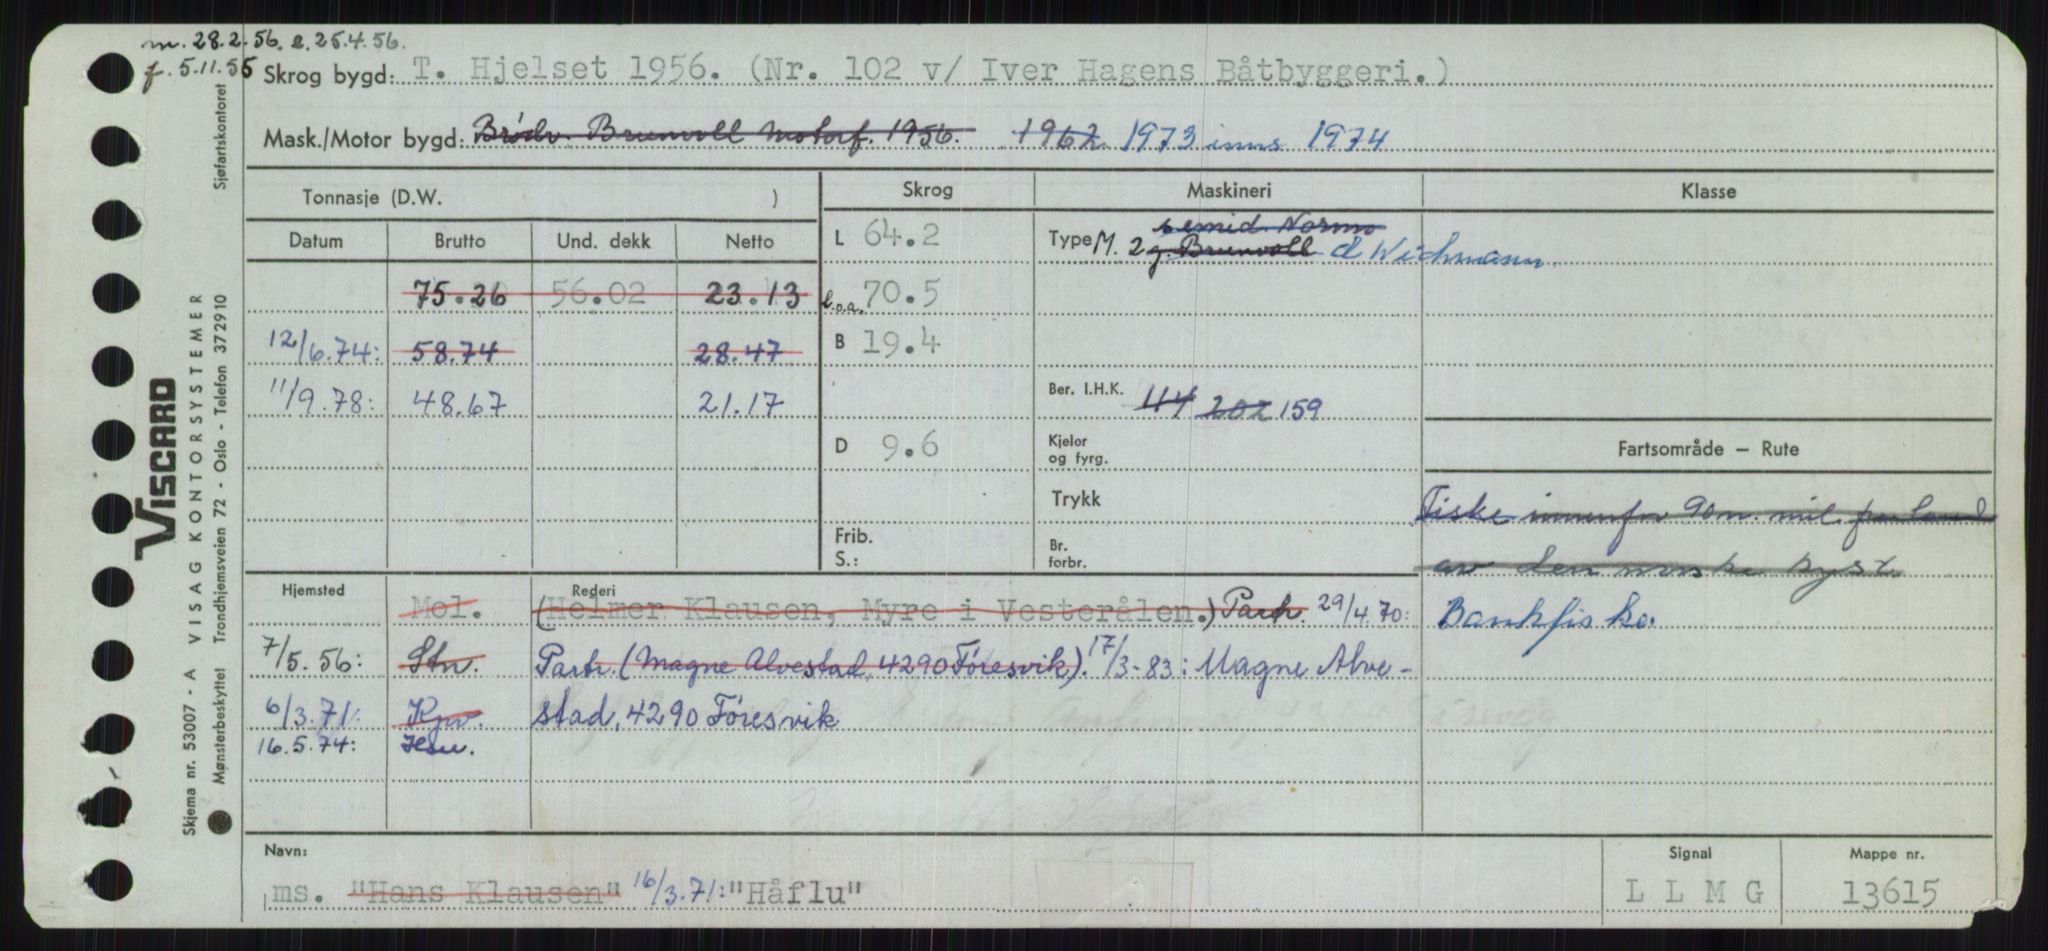 m. 28.2.56. e. 25.4.56.
f. 5.11.55
Skrog bygd: T. Hjelset 1956. (Nr. 102 v/ Iver Hagens Båtbyggeri.)
Mask./Motor bygd: Brødr. Brunvoll Motorf. 1956. 1962 1973 inns 1974
Tonnasje (D.W. )
Skrog Maskineri Klasse
Datum Brutto Und. dekk Netto
75.26 56.02 23.13
12/6.74: 58.74 28.47
11/9.78: 48.67 21.17
L 64.2
l.o.a. 70.5
B 19.4
D 9.6
Frib.
S.:
semid Normo
Type M. 2 g. Brunvoll d Wichmann
Ber. I.H.K. 44 202 159
Kjeler
og fyrg.
Trykk
Br.
forbr.
Fartsområde – Rute
Fiske innenfor 90 n. mil fra land
av den norske kyst
Bankfiske.
Hjemsted Rederi
Mol. (Helmer Klausen, Myre i Vesterålen.) Partr. 29/4.70:
7/5.56: Stn. Partr. (Magne Alvestad, 4290 Føresvik). 17/3-83: Magne Alve-
6/3.71: Kpv. stad, 4290 Føresvik
16.5.74:
Navn: Signal Mappe nr.
ms. "Hans Klausen" 16/3.71: "Håflu" L L M G 13615
Sjøfartskontoret
VISCARD
VISAG KONTORSYSTEMER
Skjema nr. 53007 - A
Mønsterbeskyttet Trondhjemsveien 72 - Oslo - Telefon 372910